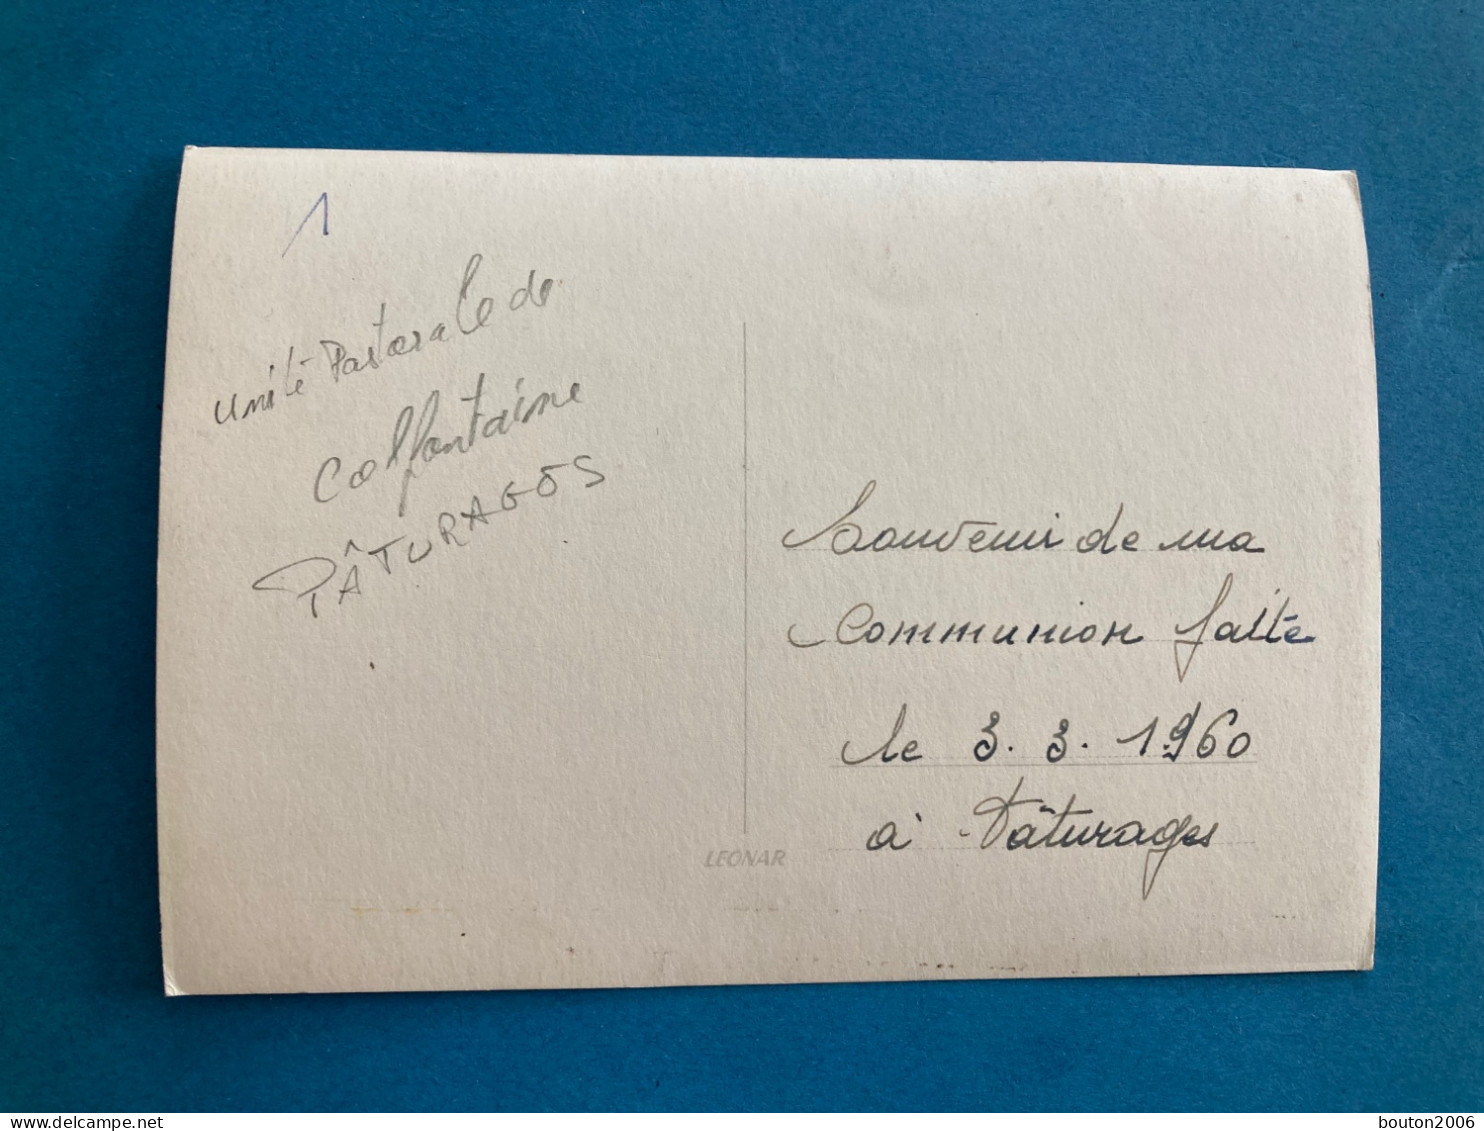 1
unité Pastorale de
Colfontaine
PÂTURAGES
Souvenir de ma
Communion faite
le 3.3.1960
à Pâturages
LEONAR
bouton2006